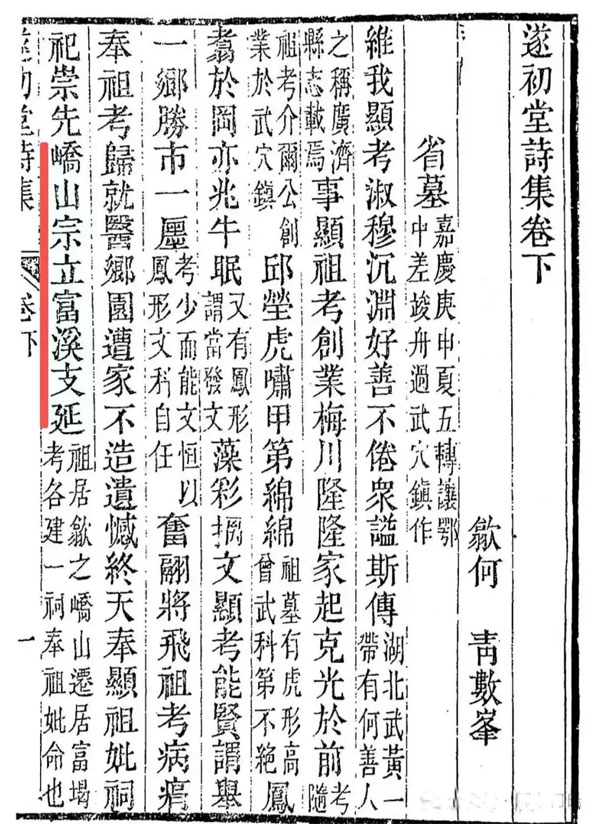 遂初堂詩集卷下
歙何 青數峯
省墓 嘉慶庚申夏五轉讓鄂中差竣舟過武穴鎮作
維我顯考淑穆沉淵好善不倦衆謚斯傳湖北武黃一帶有何善人
之稱廣濟縣志載焉事顯祖考創業梅川隆隆家起克光於前考隨
祖考介爾公創業於武穴鎮邱塋虎嘯甲第綿綿祖墓有虎形高曾武科第不絕鳳
翥於岡亦兆牛眠又有鳳形謂當發文藻彩摛文顯考能賢謂舉
一鄉勝市一廛考少而能文恒以鳳形文科自任奮翮將飛祖考病
奉祖考歸就醫鄉園遭家不造遺憾終天奉顯祖妣祠
祀崇先嶠山宗立富溪支延祖居歙之嶠山遷居富堨考各建一祠奉祖妣命也
遂初堂詩集 卷下 一